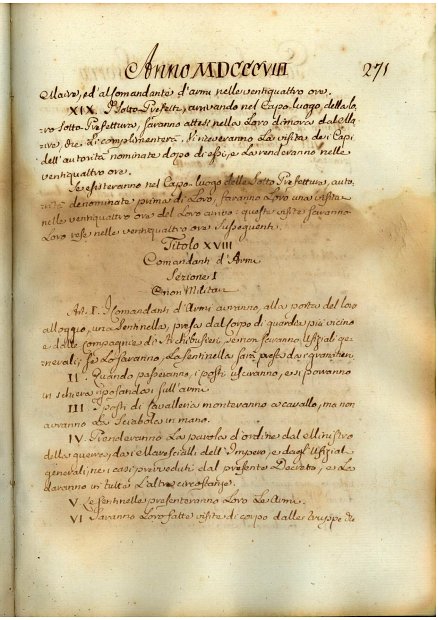 Anno MDCCCVIII 271
Maire, ed'al Comandante d'armi nelle ventiquattro ore.
XIX. I Sotto-Prefetti, arrivando nel Capo luogo, della lo,
ro Sotto Prefettura, saranno attesi nella loro dimora dal Ma,
ire, che li complimenterà. Riceveranno la visita dei Capi
dell'autorità nominate dopo di essi, e la renderanno nelle
ventiquattro ore.
Se esisteranno nel Capo luogo delle Sotto Prefettura, auto,
rità denominate prima di Loro, faranno Loro una visita
nelle ventiquattro ore del Loro arrivo: queste visite saranno
Loro rese nelle ventiquattro ore susseguenti.
Titolo XVIII
Comandanti d'Armi
Sezione I
Onori Militari
Art. I. I Comandanti d'Armi avranno, alla porta del loro
alloggio, una Sentinella, presa dal Corpo di guardia più vicino
e dalle compagnie di Fucilieri, se non saranno Uffiziali ge,
nerali; se Lo saranno, La sentinella sarà presa da' granatieri.
II Quando passeranno, i posti usciranno, e si porranno
in schiera riposandosi sull'armi.
III I posti di Cavalleria monteranno a cavallo, ma non
avranno La Sciabola in mano.
IV. Prenderanno La parola d'ordine dal Ministro
della guerra, dai Marescialli dell'Impero, e dagl'Uffiziali
generali, ne i casi preveduti dal presente Decreto, e La
daranno in tutte L'altre circostanze.
V Le sentinelle presenteranno Loro Le Armi.
VI Saranno Loro fatte visite di corpo dalle truppe di